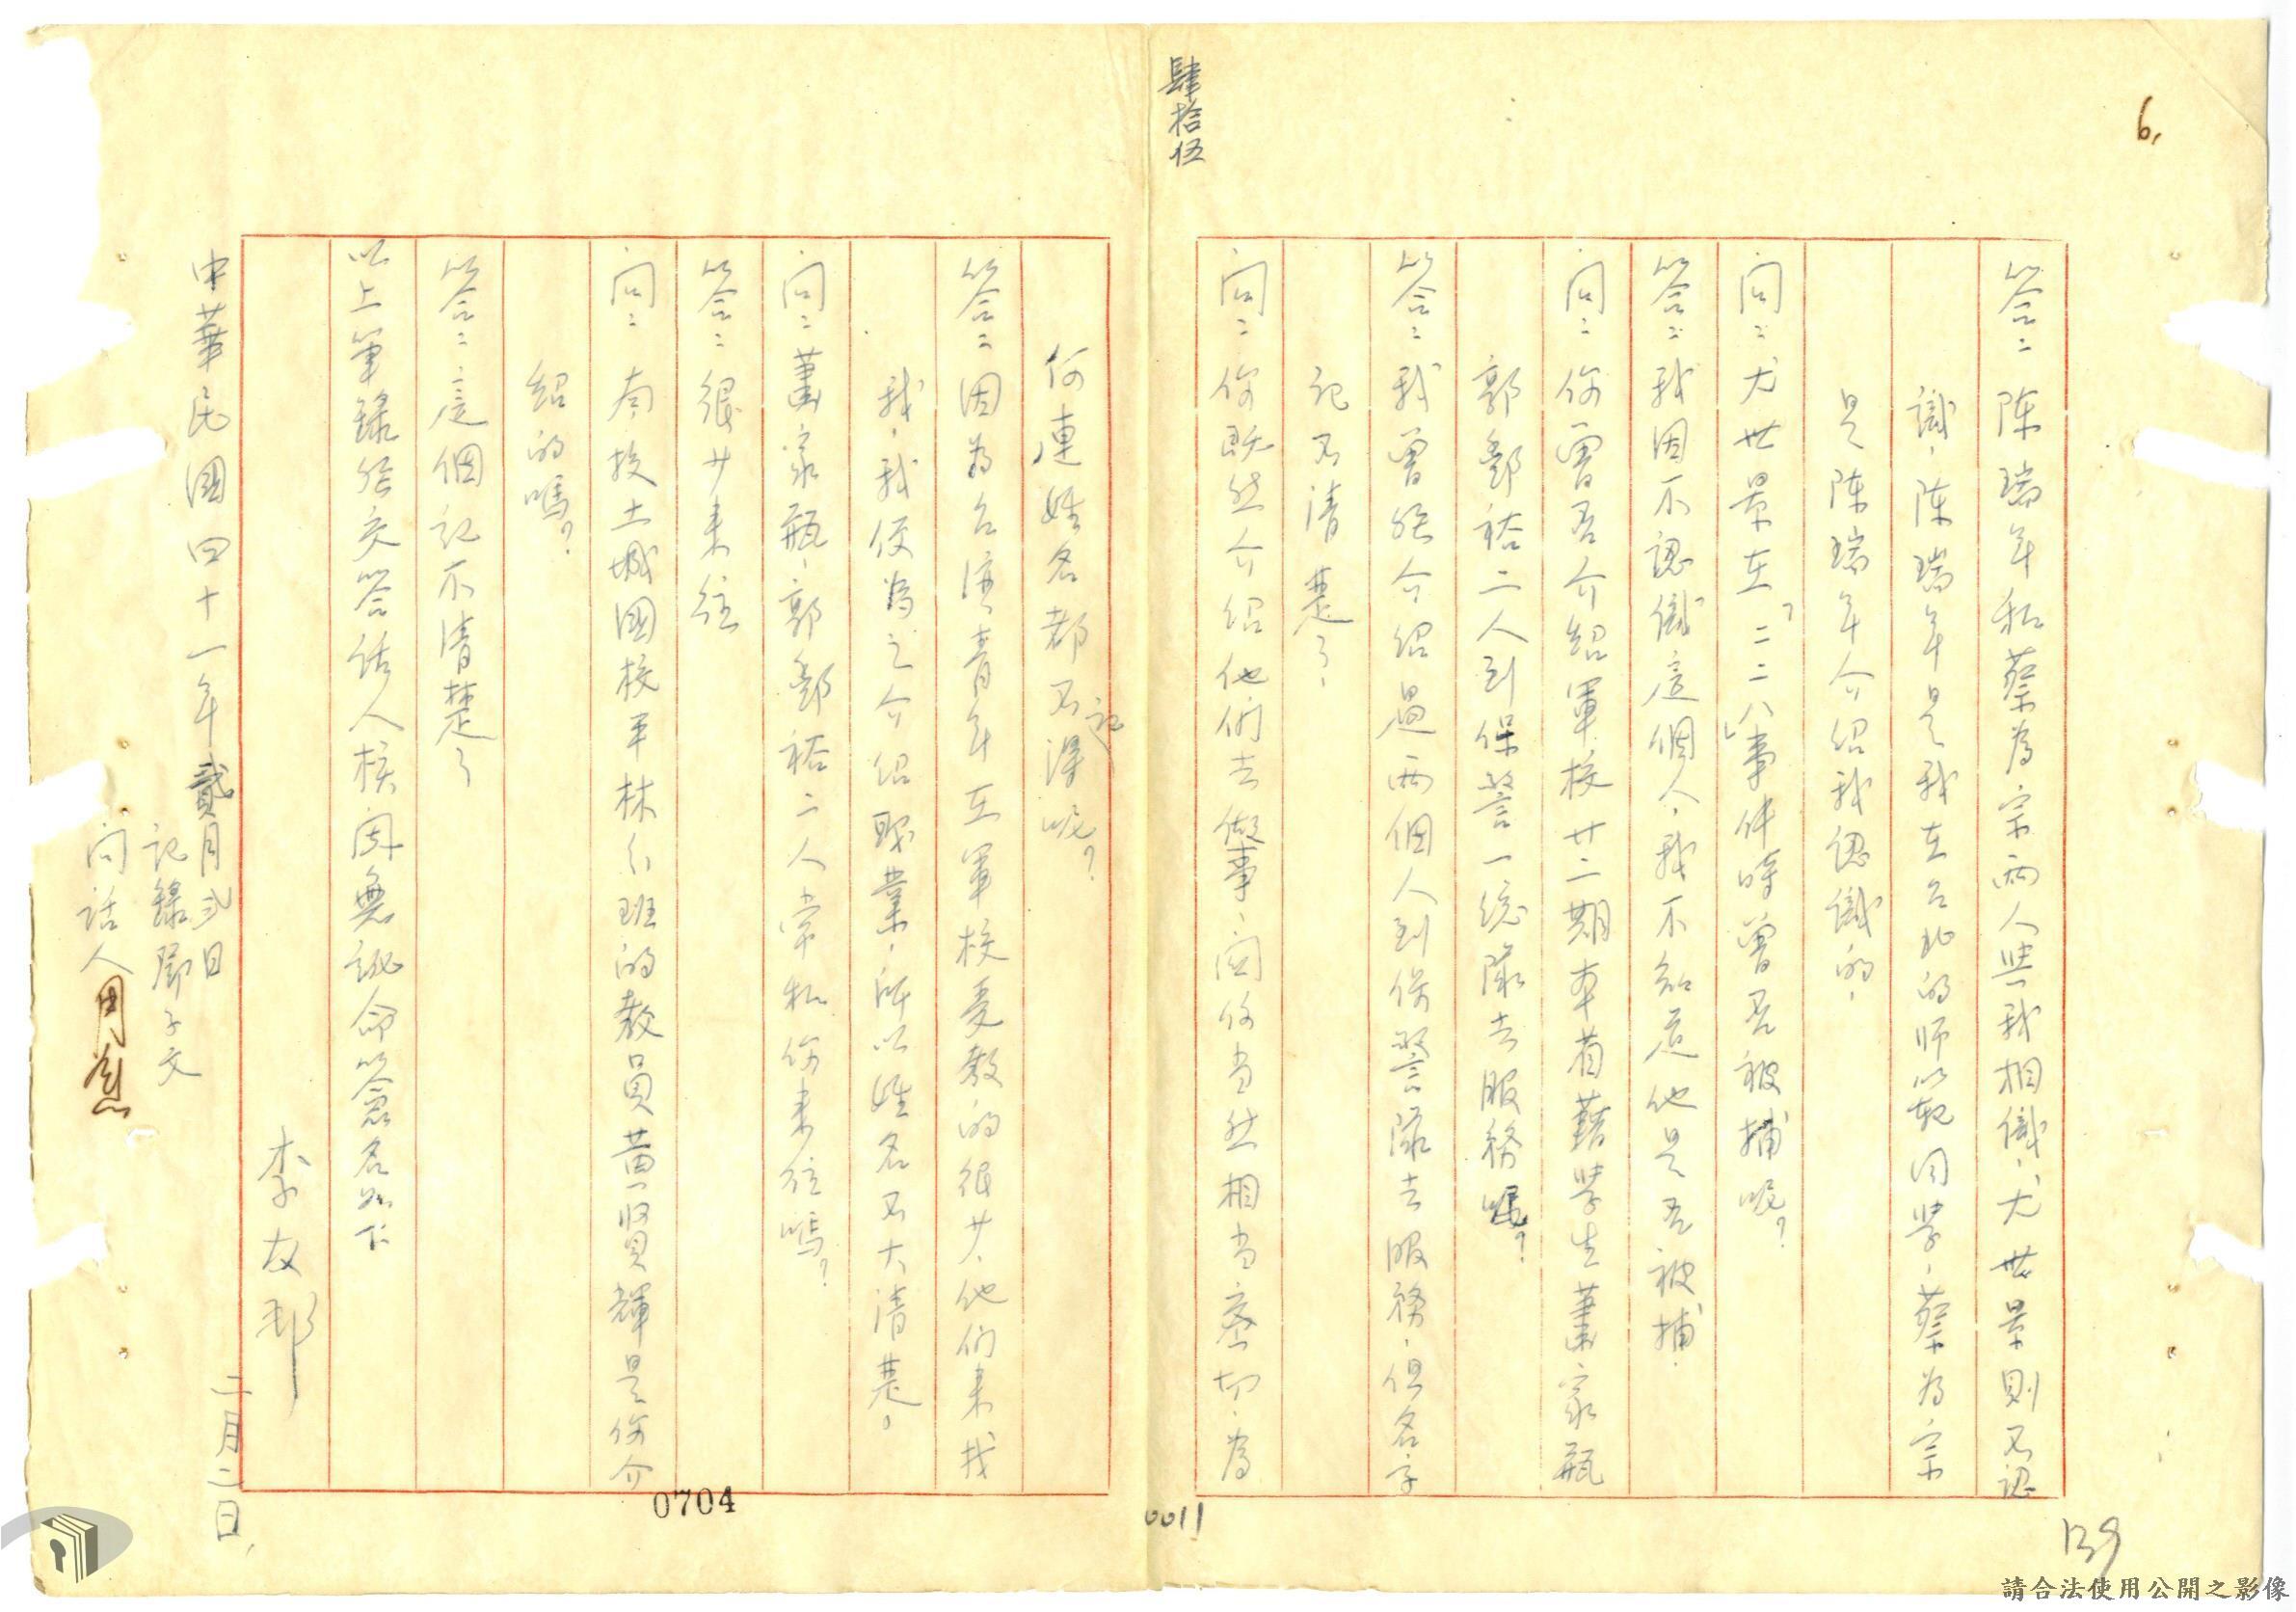 6,
答:陳瑞年和蔡為宗兩人與我相識,尤世景則不認
識,陳瑞年是我在台北的師範同學,蔡為宗
是陳瑞年介紹我認識的,
問:尤世景在「二二八」事件時曾否被捕呢?
答:我因不認識這個人,我不知道他是否被捕.
問:你曾否介紹軍校廿二期本省籍學生蕭家瓶
郭鄭裕二人到保警一總隊去服務嗎?
答:我曾經介紹過兩個人到保警隊去服務,但名字
記不清楚了,
問:你既然介紹他們去做事,同你當然相當密切,為
肆拾伍
何連姓名都不記得呢?
答:因為台灣青年在軍校受教的很少,他們來找
我,我便為之介紹職業,所以姓名不大清楚,
問:蕭家瓶,郭鄭裕二人常和你來往嗎?
答:很少來往
問:南投土城國校平林分班的教員黃賢輝是你介
紹的嗎?
答:這個記不清楚了
以上筆錄經交答話人核閱無訛命簽名如下
李友邦
二月二日,
中華民國四十一年貳月弍日
記錄鄧子文
問話人周
0704
0011
139
請合法使用公開之影像